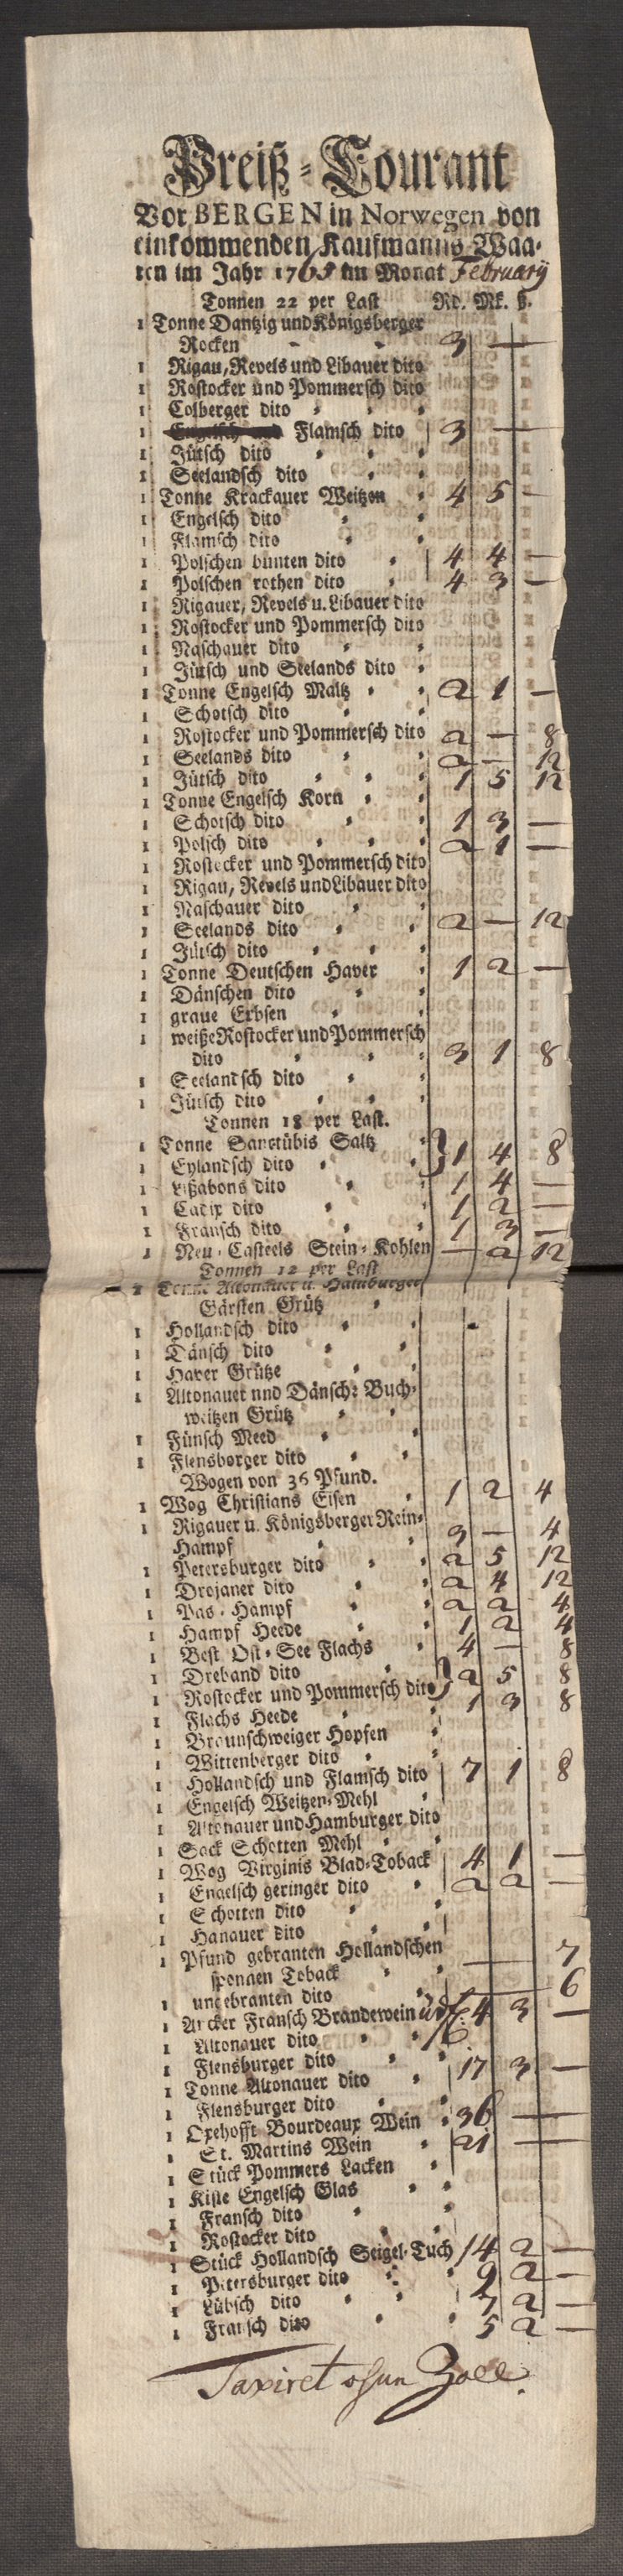 Preiß-Courant
Vor BERGEN in Norwegen von
einkommenden Kaufmanns Waa-
ren im Jahr 1765 im Monat February
Tonnen 22 per Last Rd. Mk. ß.
1 Tonne Dantzig und Königsberger
Rocken 3 —
1 Rigau, Revels und Libauer dito
1 Rostocker und Pommersch dito
1 Colberger dito
1 Flamsch dito 3 —
1 Jütsch dito
1 Seelandsch dito
1 Tonne Krackauer Weitzen 4 5 —
1 Engelsch dito
1 Flamsch dito
1 Polschen bunten dito 4 4 —
1 Polschen rothen dito 4 3 —
1 Rigauer, Revels u. Libauer dito
1 Rostocker und Pommersch dito
1 Naschauer dito
1 Jütsch und Seelands dito
1 Tonne Engelsch Maltz 2 1 —
1 Schotsch dito
1 Rostocker und Pommersch dito 2 — 8
1 Seelands dito 2 — 12
1 Jütsch dito 1 5 12
1 Tonne Engelsch Korn
1 Schotsch dito 1 3 —
1 Polsch dito 2 1 —
1 Rostocker und Pommersch dito
1 Rigau, Revels und Libauer dito
1 Naschauer dito
1 Seelands dito 2 — 12
1 Jütsch dito
1 Tonne Deutschen Haver 1 2 —
1 Dänschen dito
1 graue Erbsen
1 weiße Rostocker und Pommersch
dito 3 1 8
1 Seelandsch dito
1 Jütsch dito
Tonnen 18 per Last.
1 Tonne Sanctübis Saltz } 1 4 8
1 Eylandsch dito
1 Lißabons dito 1 4 —
1 Cadix dito 1 2 —
1 Fransch dito 1 3 —
1 Neu-Casteels Stein-Kohlen — 2 12
Tonnen 12 per Last
1 Tonne Altonauer u. Hamburger
Gärsten Grütz
1 Hollandsch dito
1 Dänsch dito
1 Haver Grütze
1 Altonauer und Dänsch: Buch-
weitzen Grütz
1 Fünsch Meed
1 Flensborger dito
Wogen von 36 Pfund.
1 Wog Christians Eisen 1 2 4
1 Rigauer u. Königsberger Rein-
Hampf 3 — 4
1 Petersburger dito 2 5 12
1 Drojaner dito 2 4 12
1 Pas-Hampf 2 2 4
1 Hampf Heede 1 2 4
1 Best Ost-See Flachs 4 — 8
1 Dreband dito } 2 5 8
1 Rostocker und Pommersch dito
1 Flachs Heede 1 3 8
1 Braunschweiger Hopfen
1 Wittenberger dito
1 Hollandsch und Flamsch dito 7 1 8
1 Engelsch Weitzen-Mehl
1 Altonauer und Hamburger dito
1 Sack Schotten Mehl
1 Wog Virginis Blad-Toback 4 1 —
1 Engelsch geringer dito 2 2 —
1 Schotten dito
1 Hanauer dito
1 Pfund gebranten Hollandschen
sponnen Toback — 7
1 ungebranten dito 6
1 Ancker Fransch Brandewein 4 3 —
1 Altonauer dito
1 Flensburger dito 17 3 —
1 Tonne Altonauer dito
1 Flensburger dito
1 Oxehofft Bourdeaux Wein 36 —
1 St. Martins Wein 21 —
1 Stück Pommers Lacken
1 Kiste Engelsch Glas
1 Fransch dito
1 Rostocker dito
1 Stück Hollandsch Seigel-Tuch 14 2 —
1 Petersburger dito 9 2 —
1 Lübsch dito 7 2 —
1 Fransch dito 5 2 —
Taxiret ohun Zoll.